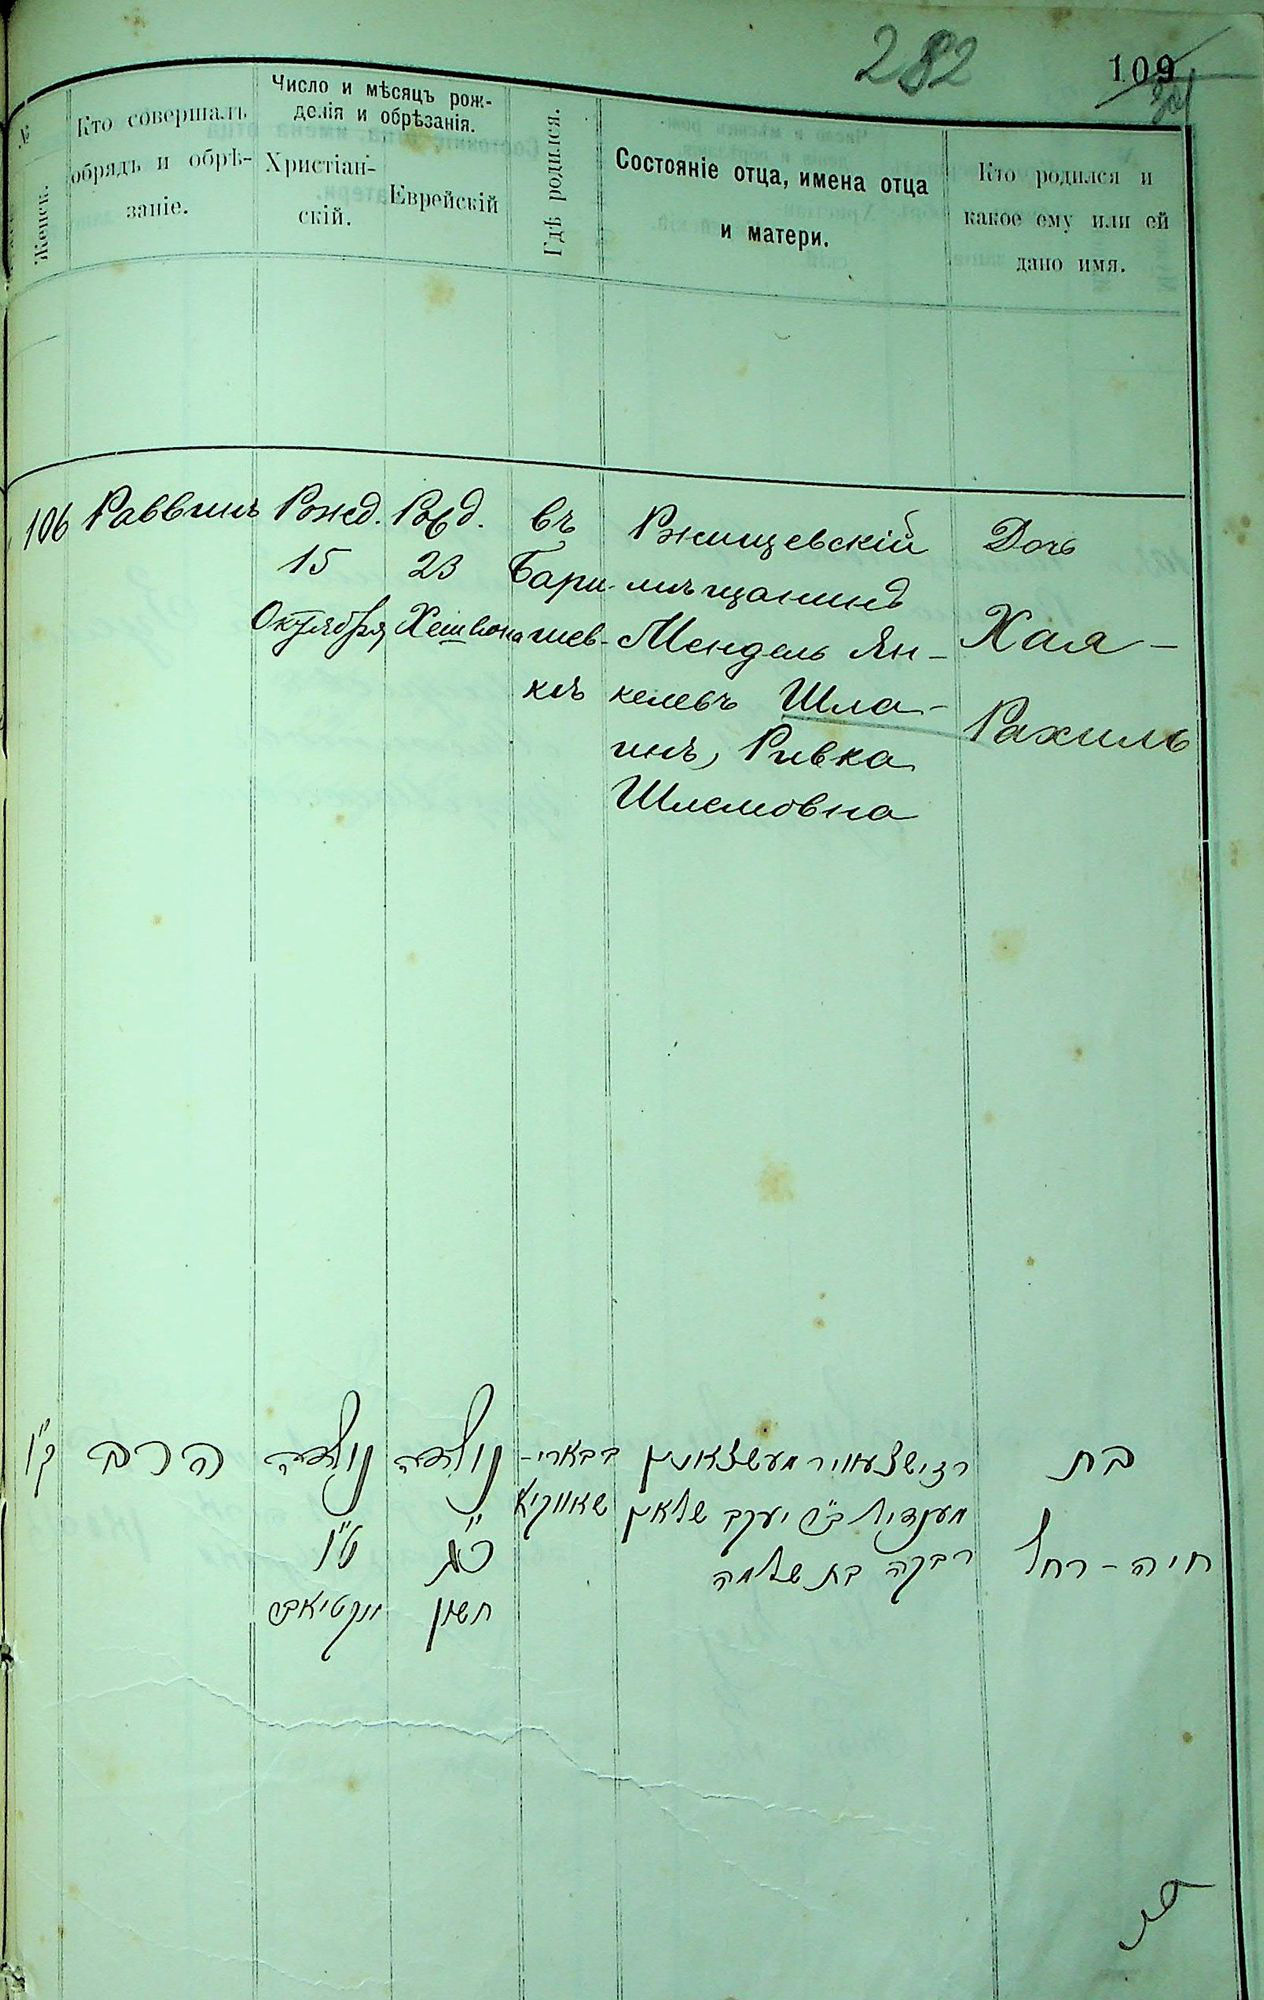 282
109
№
Женск.
Кто совершалъ
обрядъ и обрѣ-
заніе.
Число и мѣсяцъ рож-
денія и обрѣзанія.
Христіан-
скій.
Еврейскій
Гдѣ родился.
Состояніе отца, имена отца
и матери.
Кто родился и
какое ему или ей
дано имя.
106
Раввинъ
Рожд.
15
Октября
Рожд.
23
Хешвона
въ
Бари-
шев-
кѣ
Ржищевскій
мѣщанинъ
Мендель Ян-
келевъ Шла-
инъ, Ривка
Шлемовна
Дочь
Хая-
Рахиль
ק"ו
הרב
נולדה
ט"ו
אקטיאבר
נולדה
חשון
בבארי-
שאווקא
רזישצעווער מעשצאנין
מענדיל ב"ר יעקב שלאין
רבקה בת שלמה
בת
חיה-רחל